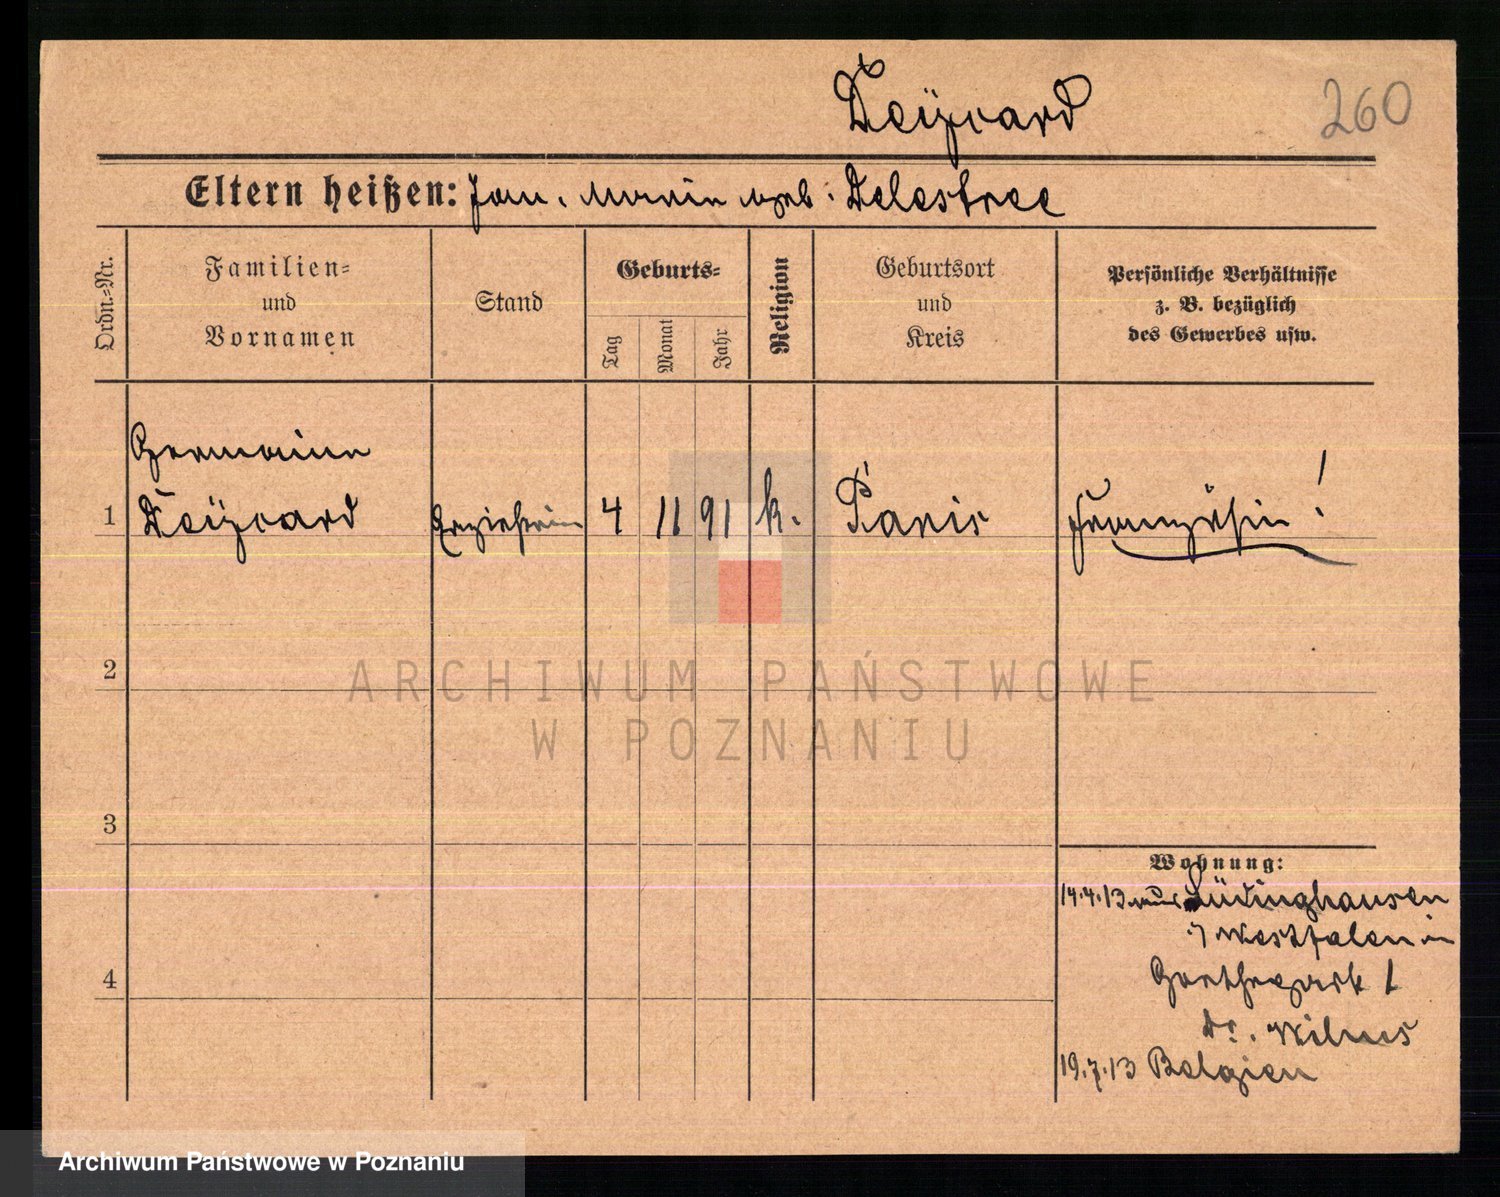 260
Eltern heißen: Jean, Marie geb: Delestree
Ordn.-Nr.
Familien-
und
Vornamen
Stand
Geburts-
Tag
Monat
Jahr
Religion
Geburtsort
und
Kreis
Persönliche Verhältnisse
z. B. bezüglich
des Gewerbes usw.
Germaine
1 Erzieherin 4 11 91 k. Paris Französin!
2
3
4
Wohnung:
14.4.13 aus Lüdinghausen
i/ Westfalen in
Goethepark 1
Dr. Wilms
19.7.13 Belgien
ARCHIWUM PAŃSTWOWE
W POZNANIU
Archiwum Państwowe w Poznaniu